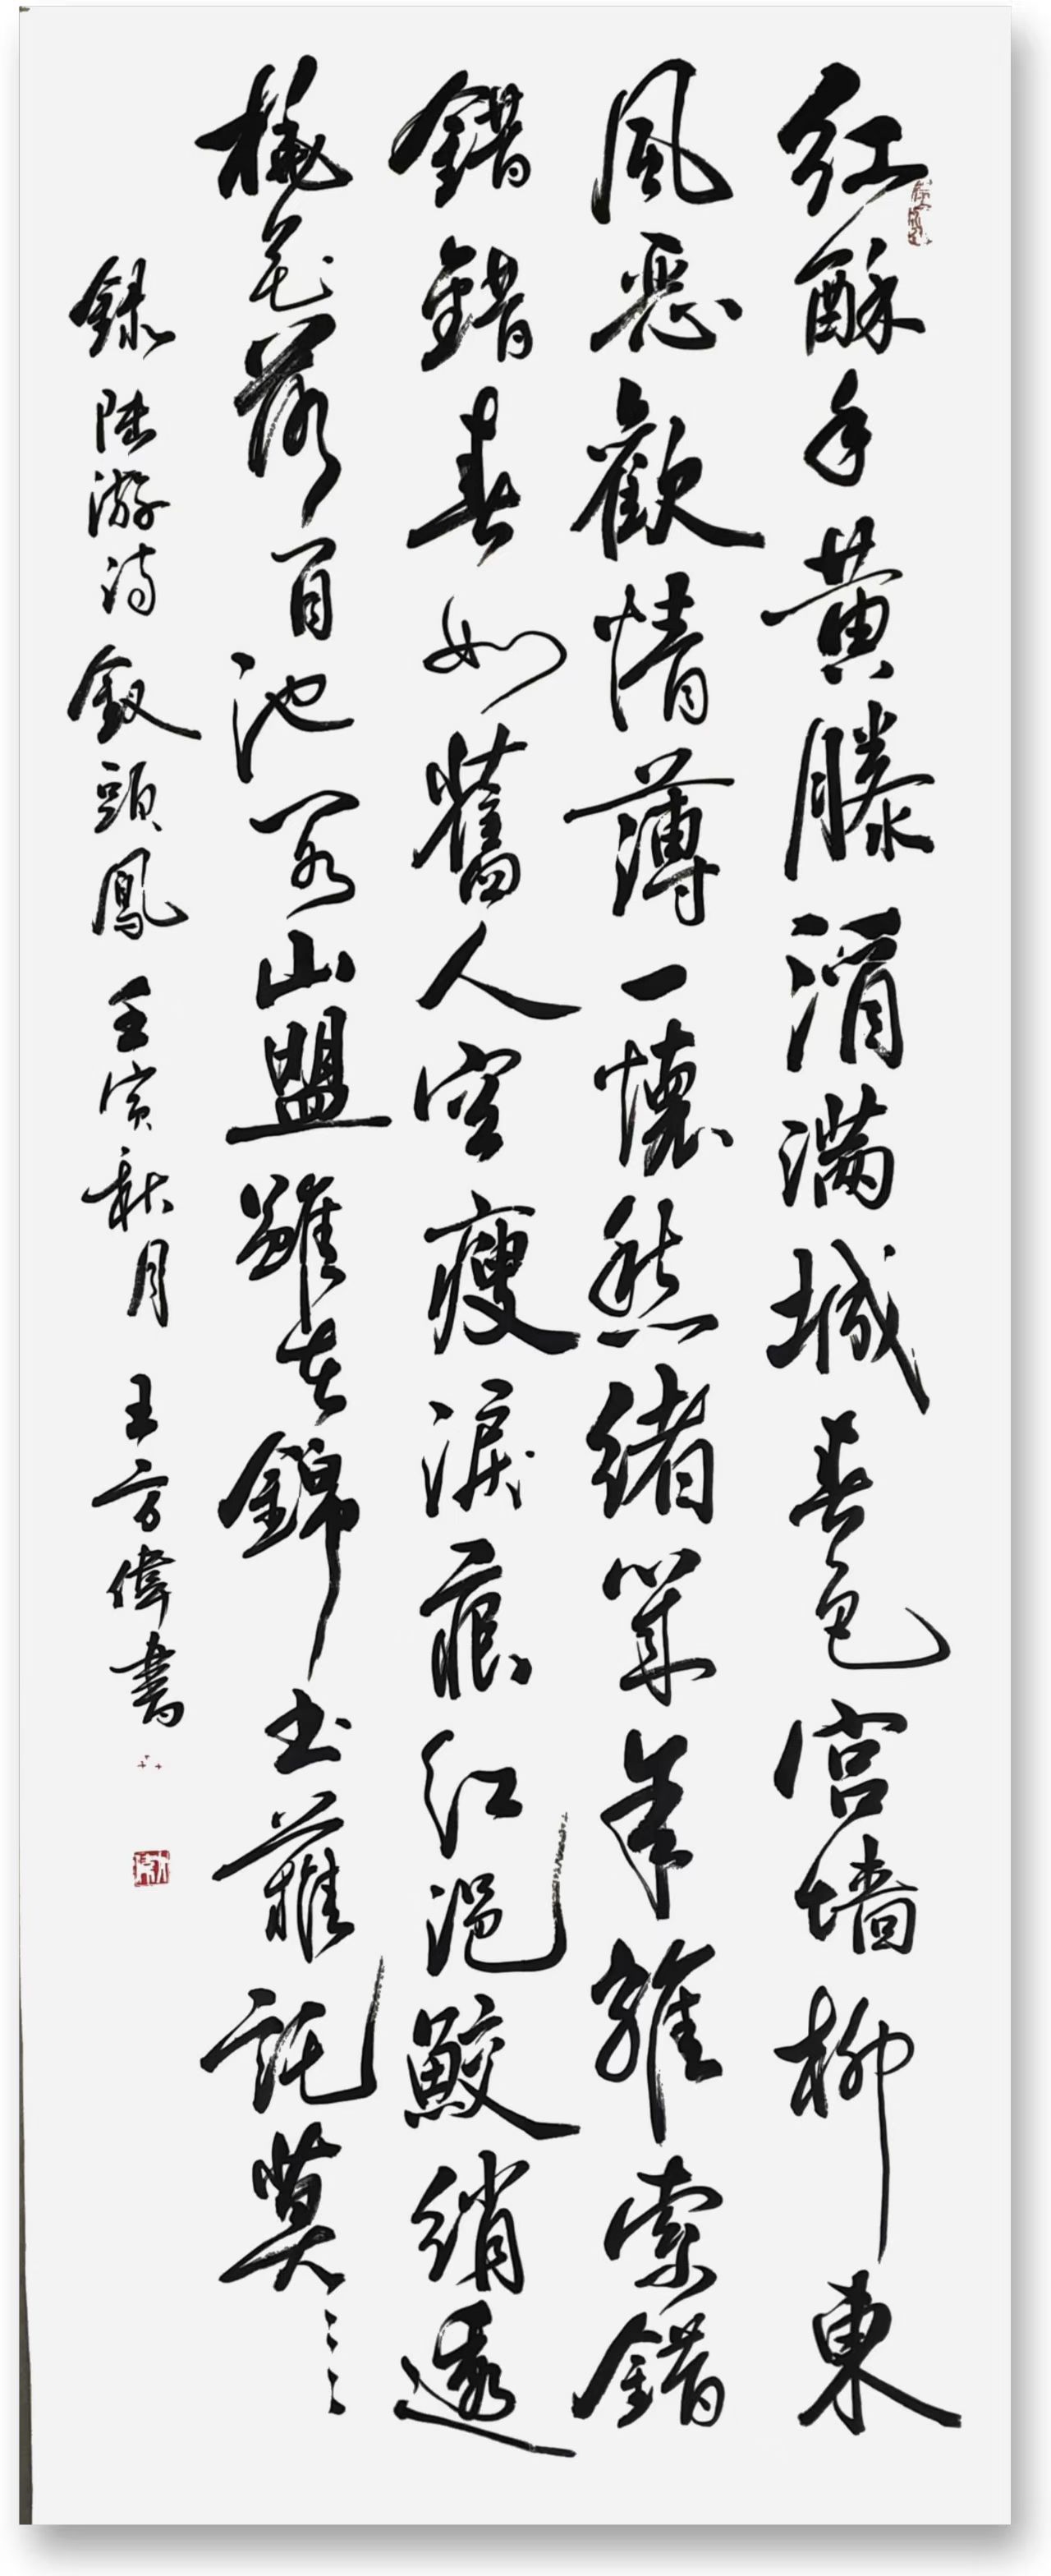 红酥手黄滕酒满城春色宫墙柳東
風恶歡情薄一懷愁緒幾年離索錯
錯錯春如舊人空瘦淚痕红浥鮫綃透
桃花落闲池阁山盟雖在錦书難託莫〻〻
録陸游詩釵頭鳳壬寅秋月王方偉書